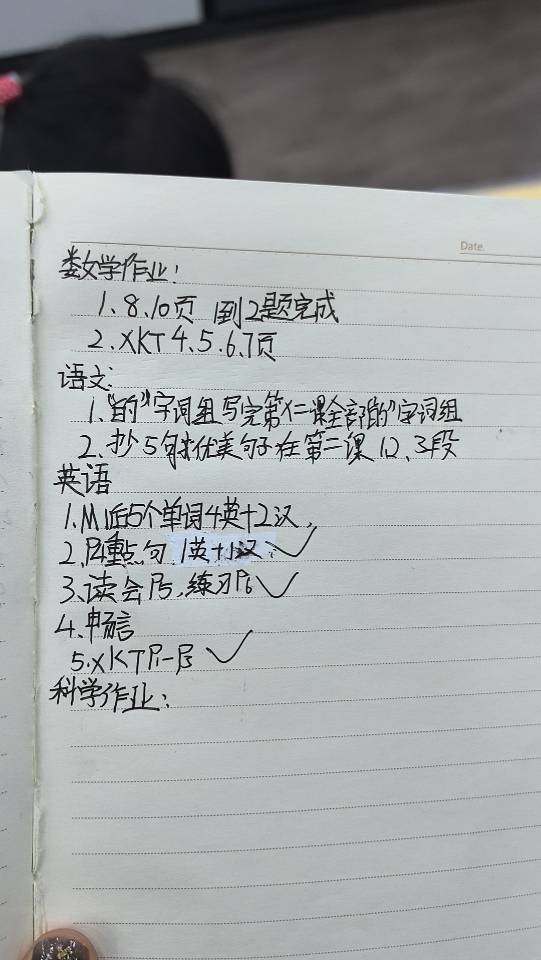 Date.
数学作业：
1、8、10页 到2题完成
2、XKT 4、5、6、7页
语文：
1、"的"字词组 写完第二课全部"的"字词组
2、抄5句优美句子在第二课 1、2、3段
英语
1、M1后5个单词4英+2汉，
2、P4重点句 1英+1汉、
3、读会P5，练习P6
4、畅言
5、XKT P1-P3
科学作业：